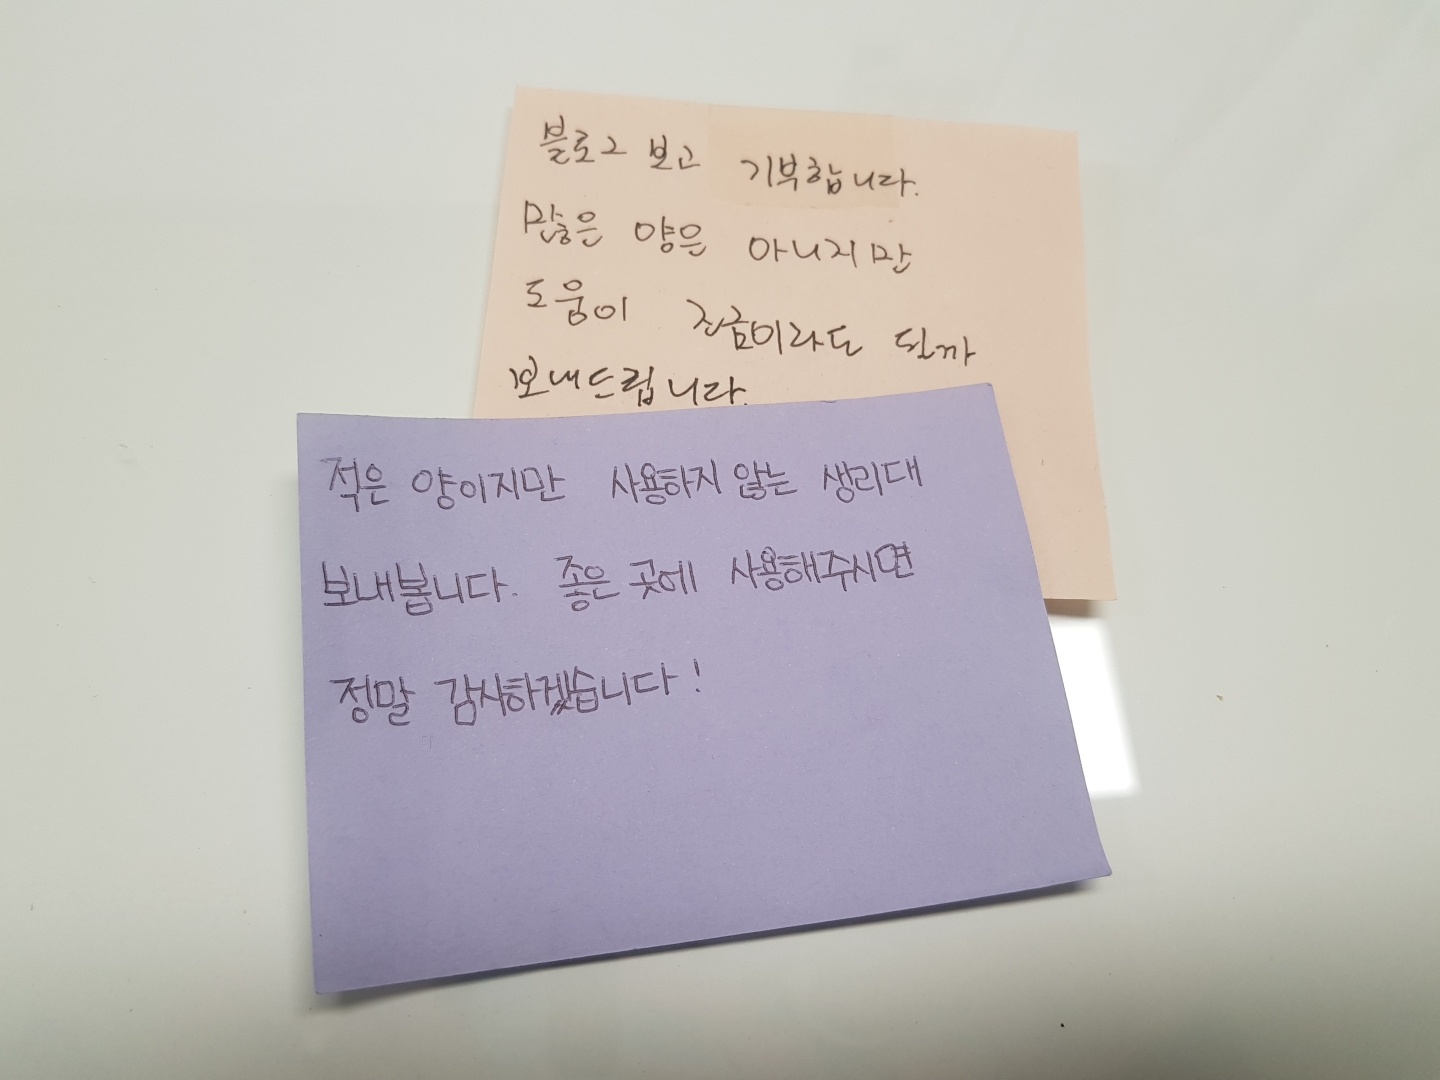 블로그 보고 기부합니다.
많은 양은 아니지만
도움이 조금이라도 될까
보내드립니다.
적은 양이지만 사용하지 않는 생리대
보내봅니다. 좋은 곳에 사용해주시면
정말 감사하겠습니다!